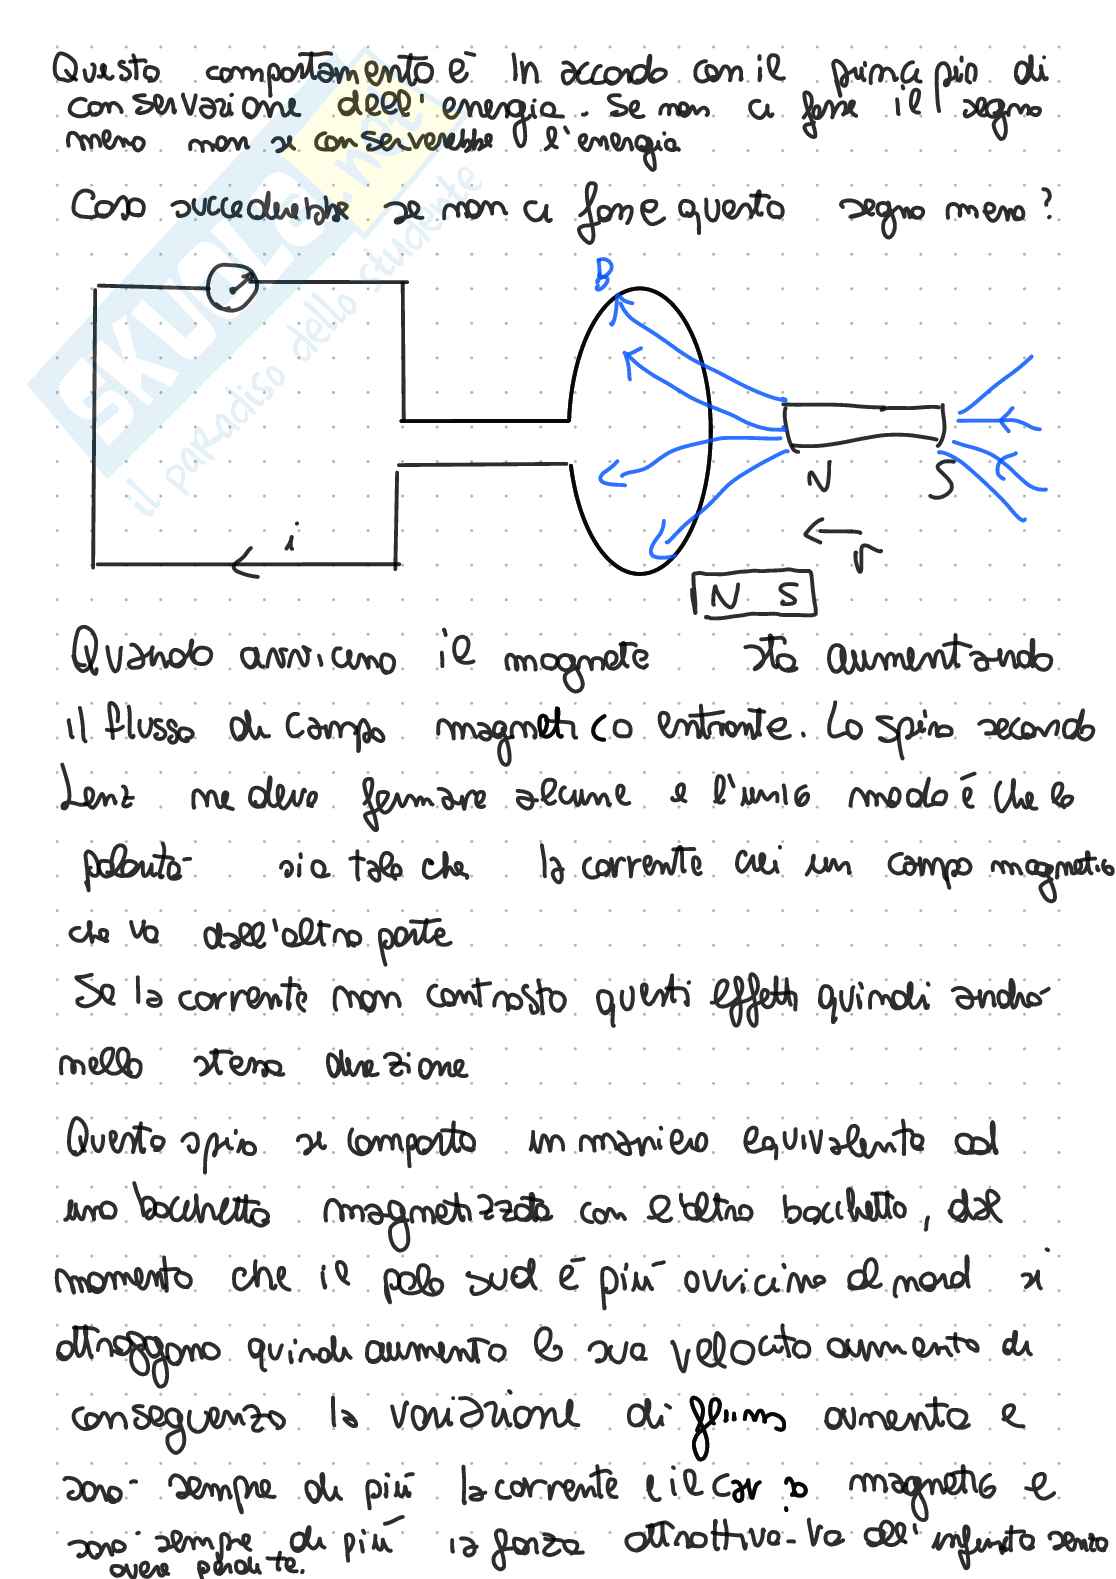 Questo comportamento è in accordo con il principio di
conservazione dell'energia. Se non ci fosse il segno
meno non si conserverebbe l'energia
Cosa succederebbe se non ci fosse questo segno meno?
SKUOLA.net
il paradiso dello studente
B
N S
i
v
N S
Quando avvicino il magnete sta aumentando
il flusso di campo magnetico entrante. La spira secondo
Lenz ne deve fermare alcune e l'unico modo è che la
polarità sia tale che la corrente crei un campo magnetico
che va dall'altra parte
Se la corrente non contrasta questi effetti quindi andrà
nella stessa direzione
Questa spira si comporta in maniera equivalente ad
una bacchetta magnetizzata con l'altra bacchetta, dal
momento che il polo sud è più vicino al nord si
attraggono quindi aumenta la sua velocità aumenta di
conseguenza la variazione di flusso aumenta e
sarà sempre di più la corrente e il magnetico e
sarà sempre di più la forza attrattiva. Va all'infinito senza
avere perdite.